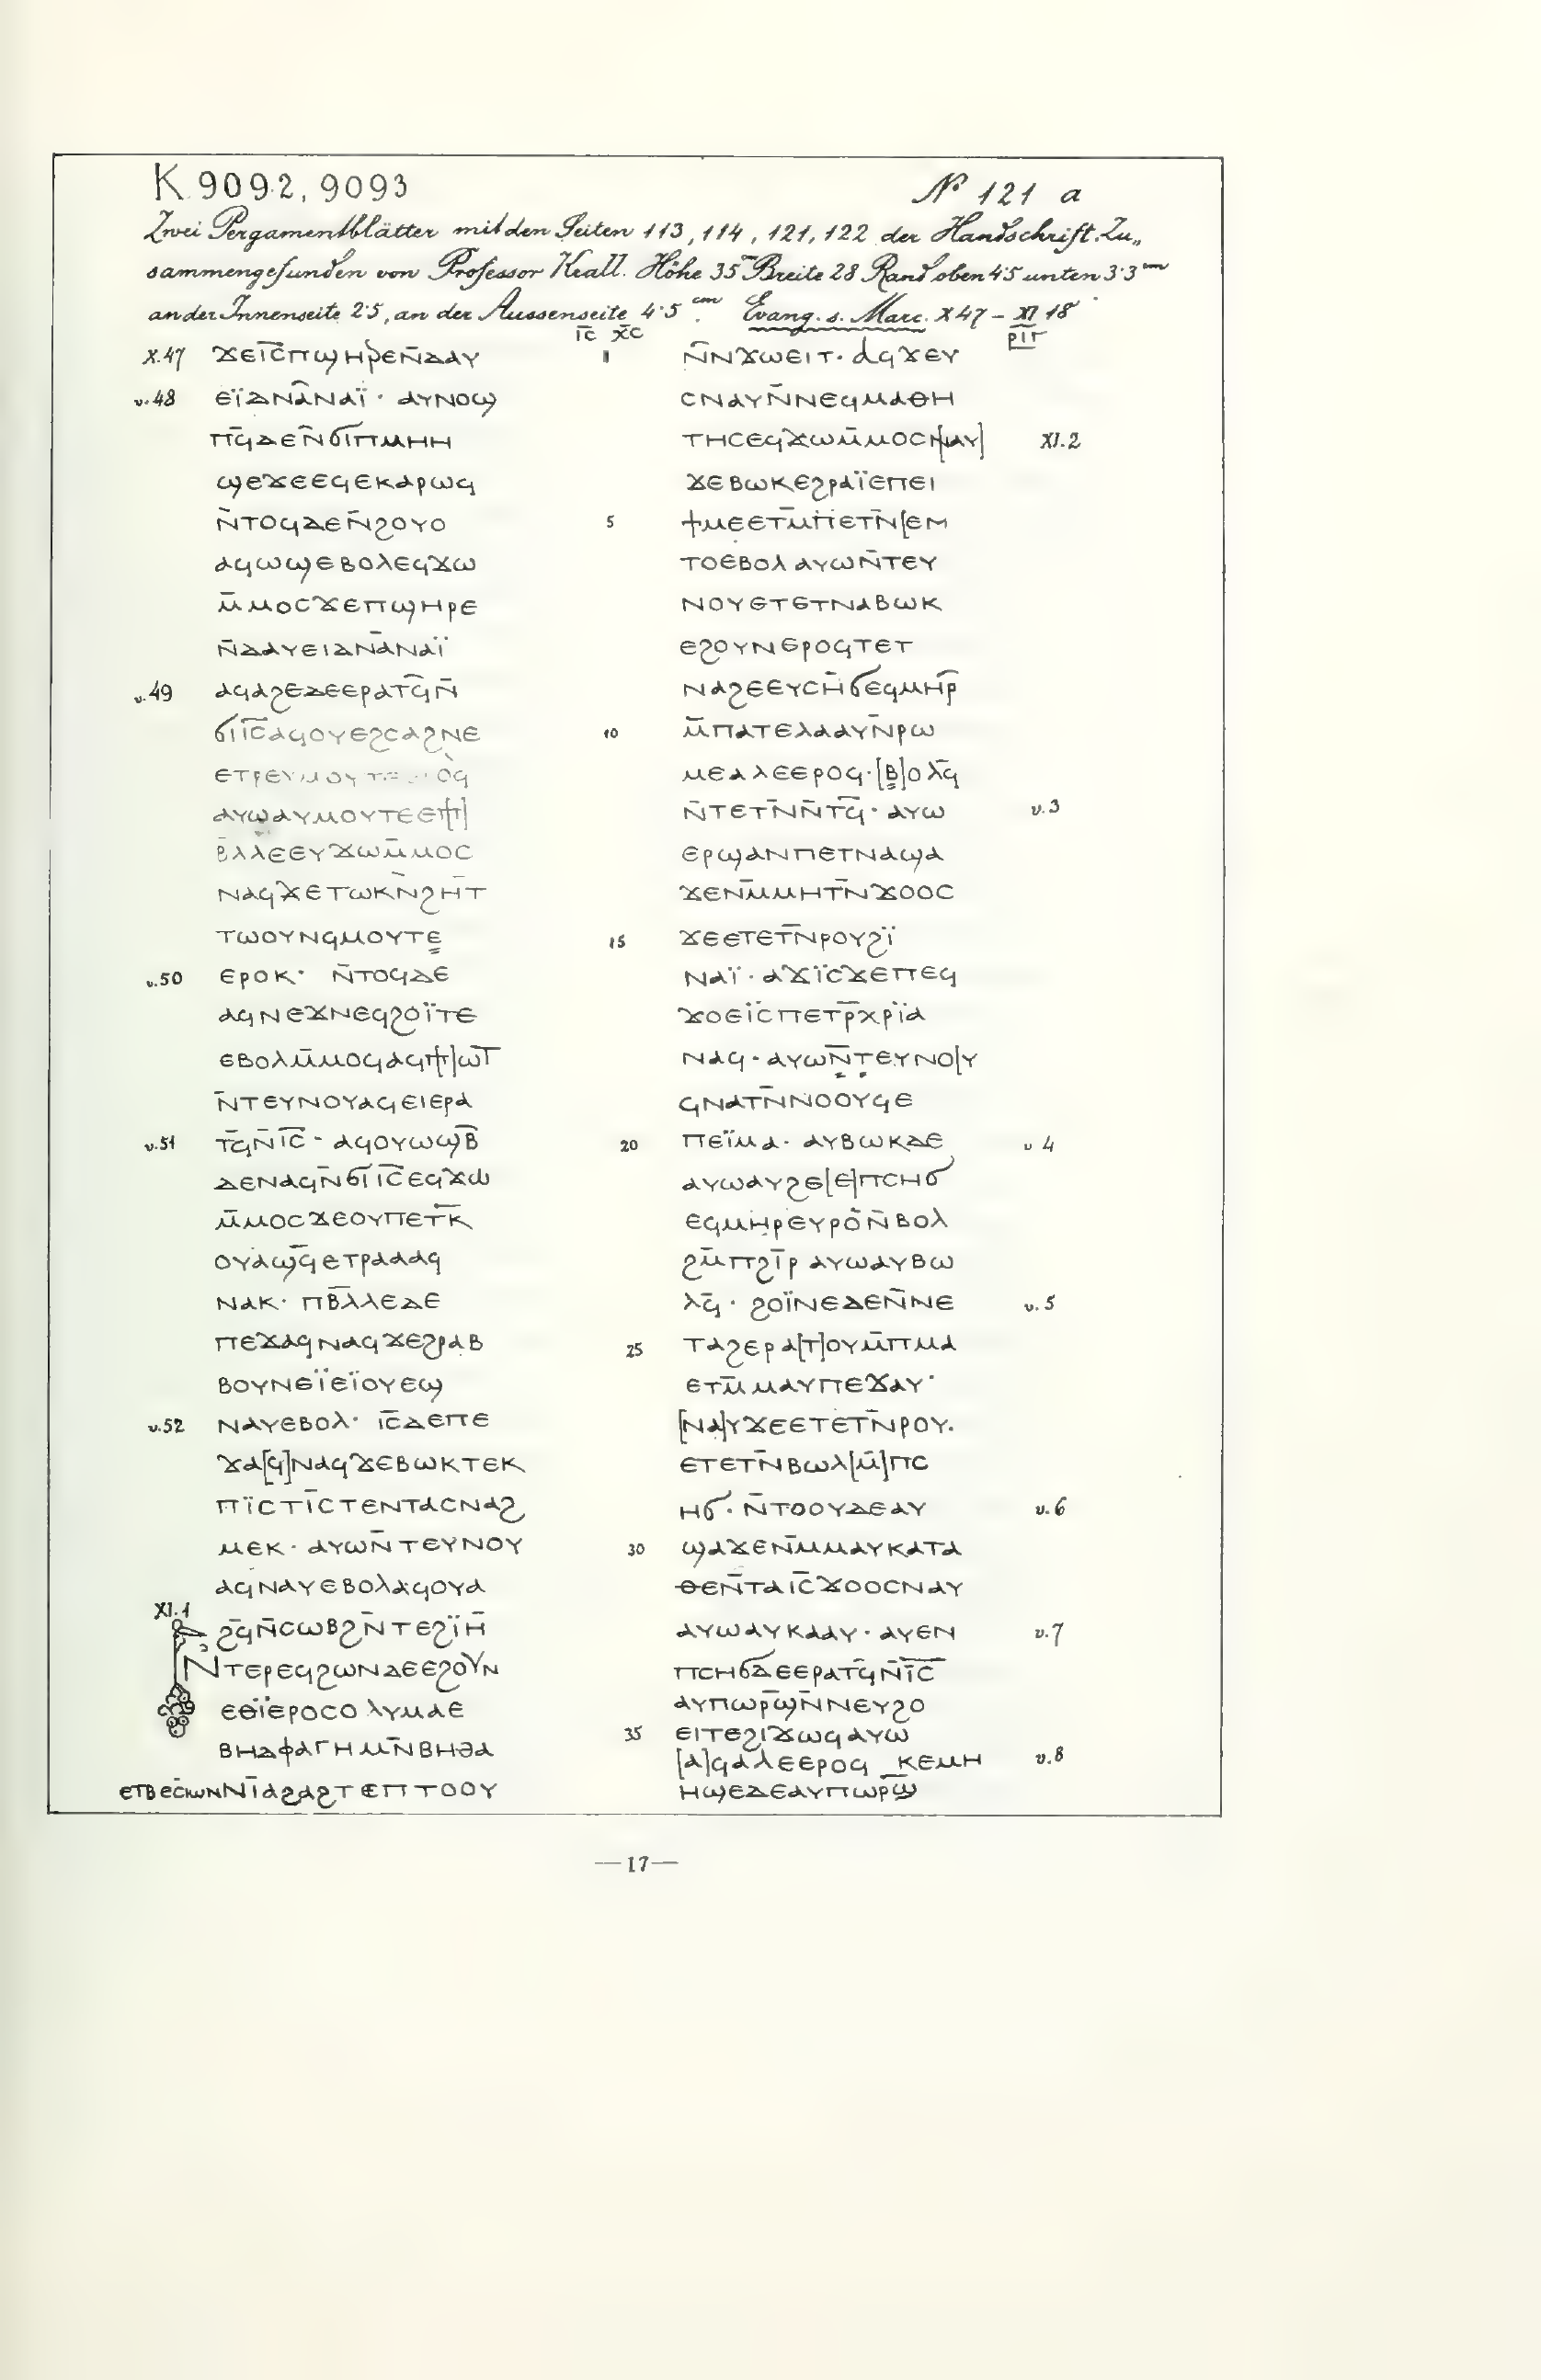 K. 9092, 9093
№ 121 a
Zwei Pergamentblätter mit den Seiten 113, 114, 121, 122 der Handschrift. Zu„
sammengefunden von Professor Krall. Höhe 35 cm Breite 28 Rand oben 4·5 unten 3·3 cm
an der Innenseite 2·5, an der Aussenseite 4·5 cm. Evang. s. Marc. X 47 – XI 18
ⲓ̅ⲥ̅ ⲭ̅ⲥ̅
ⲣⲓⲅ
X.47 ϫⲉⲓ̅ⲥ̅ⲡϣⲏⲣⲉⲛ̄ⲇⲁⲩ
v.48 ⲉⲓ̈ⲇⲛⲁ̄ⲛⲁⲓ̈· ⲁⲩⲛⲟϣ
ⲡ̄ϥⲇⲉⲛ̄ϭⲓⲡⲙⲏⲏ
ϣⲉϫⲉⲉϥⲉⲕⲁⲣⲱϥ
ⲛ̄ⲧⲟϥⲇⲉⲛ̄ϩⲟⲩⲟ
ⲁϥⲱϣⲉⲃⲟⲗⲉϥϫⲱ
ⲙ̄ⲙⲟⲥϫⲉⲡϣⲏⲣⲉ
ⲛ̄ⲇⲁⲩⲉⲓⲇⲛⲁ̄ⲛⲁⲓ̈
v.49 ⲁϥⲁϩⲉⲇⲉⲉⲣⲁⲧϥ̄ⲛ̄
ϭⲓⲓ̅ⲥ̅ⲁϥⲟⲩⲉϩⲥⲁϩⲛⲉ
ⲁⲩⲱⲁⲩⲙⲟⲩⲧⲉⲉ[ⲡ]
ⲃ̄ⲗⲗⲉⲉⲩϫⲱⲙ̄ⲙⲟⲥ
ⲛⲁϥϫⲉⲧⲱⲕⲛ̄ϩⲏⲧ
ⲧⲱⲟⲩⲛϥⲙⲟⲩⲧⲉ
v.50 ⲉⲣⲟⲕ· ⲛ̄ⲧⲟϥⲇⲉ
ⲁϥⲛⲉϫⲛⲉϥϩⲟⲓ̈ⲧⲉ
ⲉⲃⲟⲗⲙ̄ⲙⲟϥⲁϥ[ϯ]ⲱⲧ
ⲛ̄ⲧⲉⲩⲛⲟⲩⲁϥⲉⲓⲉⲣⲁ
v.51 ⲧϥ̄ⲛ̄ⲓ̅ⲥ̅· ⲁϥⲟⲩⲱϣⲃ̄
ⲇⲉⲛⲁϥⲛ̄ϭⲓⲓ̅ⲥ̅ⲉϥϫⲱ
ⲙ̄ⲙⲟⲥϫⲉⲟⲩⲡⲉⲧⲕ̄
ⲟⲩⲁϣϥ̄ⲉⲧⲣⲁⲁⲁϥ
ⲛⲁⲕ· ⲡⲃ̄ⲗⲗⲉⲇⲉ
ⲡⲉϫⲁϥⲛⲁϥϫⲉϩⲣⲁⲃ
ⲃⲟⲩⲛⲉⲓ̈ⲉⲓ̈ⲟⲩⲉϣ
v.52 ⲛⲁⲩⲉⲃⲟⲗ· ⲓ̅ⲥ̅ⲇⲉⲡⲉ
ϫⲁ[ϥ]ⲛⲁϥϫⲉⲃⲱⲕⲧⲉⲕ
ⲡⲓ̈ⲥⲧⲓ̄ⲥⲧⲉⲛⲧⲁⲥⲛⲁϩ
ⲙⲉⲕ· ⲁⲩⲱⲛ̄ⲧⲉⲩⲛⲟⲩ
ⲁϥⲛⲁⲩⲉⲃⲟⲗⲁϥⲟⲩⲁ
XI.1 ϩϥ̄ⲛ̄ⲥⲱⲃϩⲛ̄ⲧⲉϩⲓ̈ⲏ̄
ⲛ̄ⲧⲉⲣⲉϥϩⲱⲛⲇⲉⲉϩⲟⲩⲛ
ⲉⲑⲓ̈ⲉⲣⲟⲥⲟⲗⲩⲙⲁⲉ
ⲃⲏⲇⲫⲁⲅⲏⲙⲛ̄ⲃⲏⲑⲁ
ⲛⲓ̄ⲁϩⲁϩⲧⲉⲡⲧⲟⲟⲩ
1 ⲛ̄ⲛϫⲱⲉⲓⲧ· ⲁϥϫⲉⲩ
ⲥⲛⲁⲩⲛ̄ⲛⲉϥⲙⲁⲑⲏ
ⲧⲏⲥⲉϥϫⲱⲙ̄ⲙⲟⲥⲛ[ⲁⲩ] XI.2
ϫⲉⲃⲱⲕⲉϩⲣⲁⲓ̈ⲉⲡⲉⲓ
5 ϯⲙⲉⲉⲧⲙ̄ⲡⲉⲧⲛ̄[ⲉⲙ
ⲧⲟⲉⲃⲟⲗ ⲁⲩⲱⲛ̄ⲧⲉⲩ
ⲛⲟⲩⲉⲧⲉⲧⲛⲁⲃⲱⲕ
ⲉϩⲟⲩⲛⲉⲣⲟϥⲧⲉⲧ
ⲛⲁϩⲉⲉⲩⲥⲏ̄ϭⲉϥⲙⲏⲣ̄
10 ⲙ̄ⲡⲁⲧⲉⲗⲁⲁⲩⲛ̄ⲣⲱ
ⲙⲉⲁⲗⲉⲉⲣⲟϥ·[ⲃ]ⲟⲗϥ̄
ⲛ̄ⲧⲉⲧⲛ̄ⲛ̄ⲧϥ̄· ⲁⲩⲱ v.3
ⲉⲣϣⲁⲛⲡⲉⲧⲛⲁϣⲁ
ϫⲉⲛⲙ̄ⲙⲏⲧⲛ̄ϫⲟⲟⲥ
15 ϫⲉⲉⲧⲉⲧⲛ̄ⲣⲟⲩϩⲓ̈
ⲛⲁⲓ̈· ⲁϫⲓ̈ⲥϫⲉⲡⲉϥ
ϫⲟⲉⲓ̈ⲥⲡⲉⲧⲣ̄ⲭⲣⲓ̈ⲁ
ⲛⲁϥ· ⲁⲩⲱⲛ̄ⲧⲉⲩⲛⲟ[ⲩ
ϥⲛⲁⲧⲛ̄ⲛⲟⲟⲩϥⲉ
20 ⲡⲉⲓ̈ⲙⲁ· ⲁⲩⲃⲱⲕⲇⲉ v 4
ⲁⲩⲱⲁⲩϩⲉ[ⲉ]ⲡⲥⲏϭ
ⲉϥⲙⲏⲣⲉⲩⲣⲟⲛ̄ⲃⲟⲗ
ϩⲙ̄ⲡϩⲓ̄ⲣ ⲁⲩⲱⲁⲩⲃⲱ
ⲗϥ̄· ϩⲟⲓ̈ⲛⲉⲇⲉⲛ̄ⲛⲉ v.5
25 ⲧⲁϩⲉⲣⲁ[ⲧ]ⲟⲩⲙ̄ⲡⲙⲁ
ⲉⲧⲙ̄ⲙⲁⲩⲡⲉϫⲁⲩ·
[ⲛⲁ]ⲩϫⲉⲉⲧⲉⲧⲛ̄ⲣⲟⲩ.
ⲉⲧⲉⲧⲛ̄ⲃⲱⲗ[ⲙ̄]ⲡⲥ
ⲏϭ· ⲛ̄ⲧⲟⲟⲩⲇⲉⲁⲩ v.6
30 ϣⲁϫⲉⲛⲙ̄ⲙⲁⲩⲕⲁⲧⲁ
ⲑⲉⲛ̄ⲧⲁⲓ̅ⲥ̅ϫⲟⲟⲥⲛⲁⲩ
ⲁⲩⲱⲁⲩⲕⲁⲁⲩ· ⲁⲩⲉⲛ v.7
ⲡⲥⲏϭⲇⲉⲉⲣⲁⲧϥ̄ⲛ̄ⲓ̅ⲥ̅
ⲁⲩⲡⲱⲣ̄ϣⲛ̄ⲛⲉⲩϩⲟ
35 ⲉⲓⲧⲉϩⲓϫⲱϥⲁⲩⲱ
[ⲁ]ϥⲁⲗⲉⲉⲣⲟϥ ⲕⲉⲙⲏ v.8
ⲏϣⲉⲇⲉⲁⲩⲡⲱⲣϣ̄
—17—